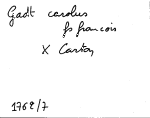 Gadt carolus
fs francois
X Carton
1762/7